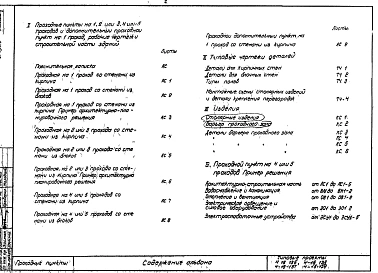 I Проходные пункты на 1, 2 и 3, 4 или 8
проходов и дополнительный проходной
пункт на 1 проход, рабочие чертежи и
строительной части зданий
Листы
Пояснительная записка
Проходная на 1 проход со стенами
из кирпича АС 1
Проходная на 1 проход со стенами из
блоков АС 2
Проходная на 1 проход со стенами из
кирпича Пример архитектурно-пла-
нировочного решения АС 3
Проходная на 2 или 3 прохода со сте-
нами из кирпича АС 4
Проходная на 2 или 3 прохода со сте-
нами из блоков АС 5
Проходная на 2 или 3 прохода со стена-
ми из кирпича Пример архитектурно-
планировочного решения АС 6
Проходная на 4 или 8 проходов со
стенами из кирпича АС 7
Проходная на 4 или 8 проходов со сте-
нами из блоков АС 8
Листы
Проходной дополнительный пункт на
1 проход со стенами из кирпича АС 9
II Типовые чертежи деталей
Детали для кирпичных стен ТЧ 1
Детали для блочных стен ТЧ 2
Типы полов ТЧ 3
Монтажные схемы столярных изделий
и детали крепления перегородок ТЧ-4
III Изделия
Столярные изделия КС 1
Барьер проходного зала КС 2
Детали барьера проходного зала КС 3
КС 4
КС 5
КС 6
Б. Проходной пункт на 4 или 8
проходов Пример решения
Архитектурно-строительная часть
Водоснабжение и канализация
Отопление и вентиляция
Электрическое освещение и
силовое оборудование
Электрослаботочные устройства
Проходные пункты
Содержание альбома
Типовые проекты